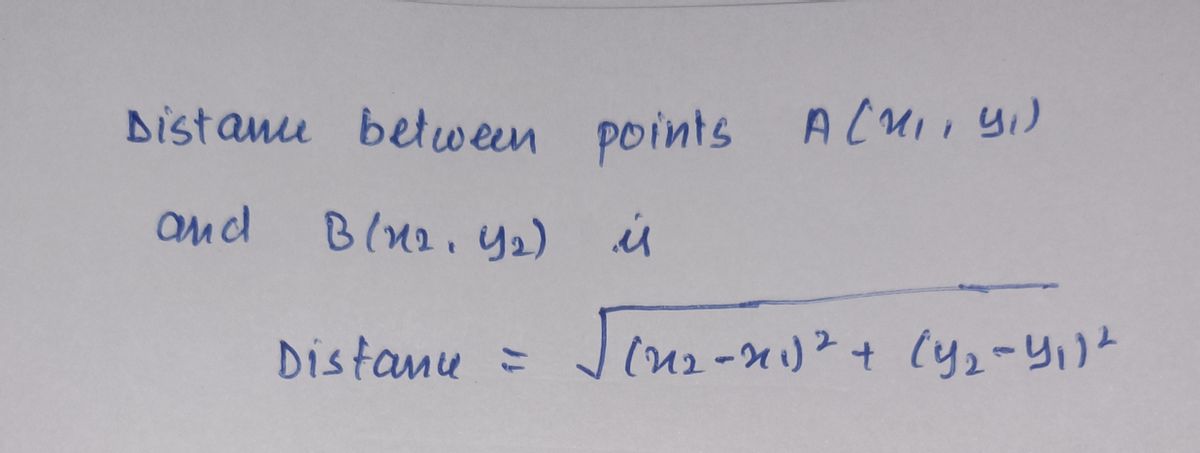 Distance between points A(x₁, y₁)
and B(x₂, y₂) is
Distance = √(x₂-x₁)² + (y₂-y₁)²